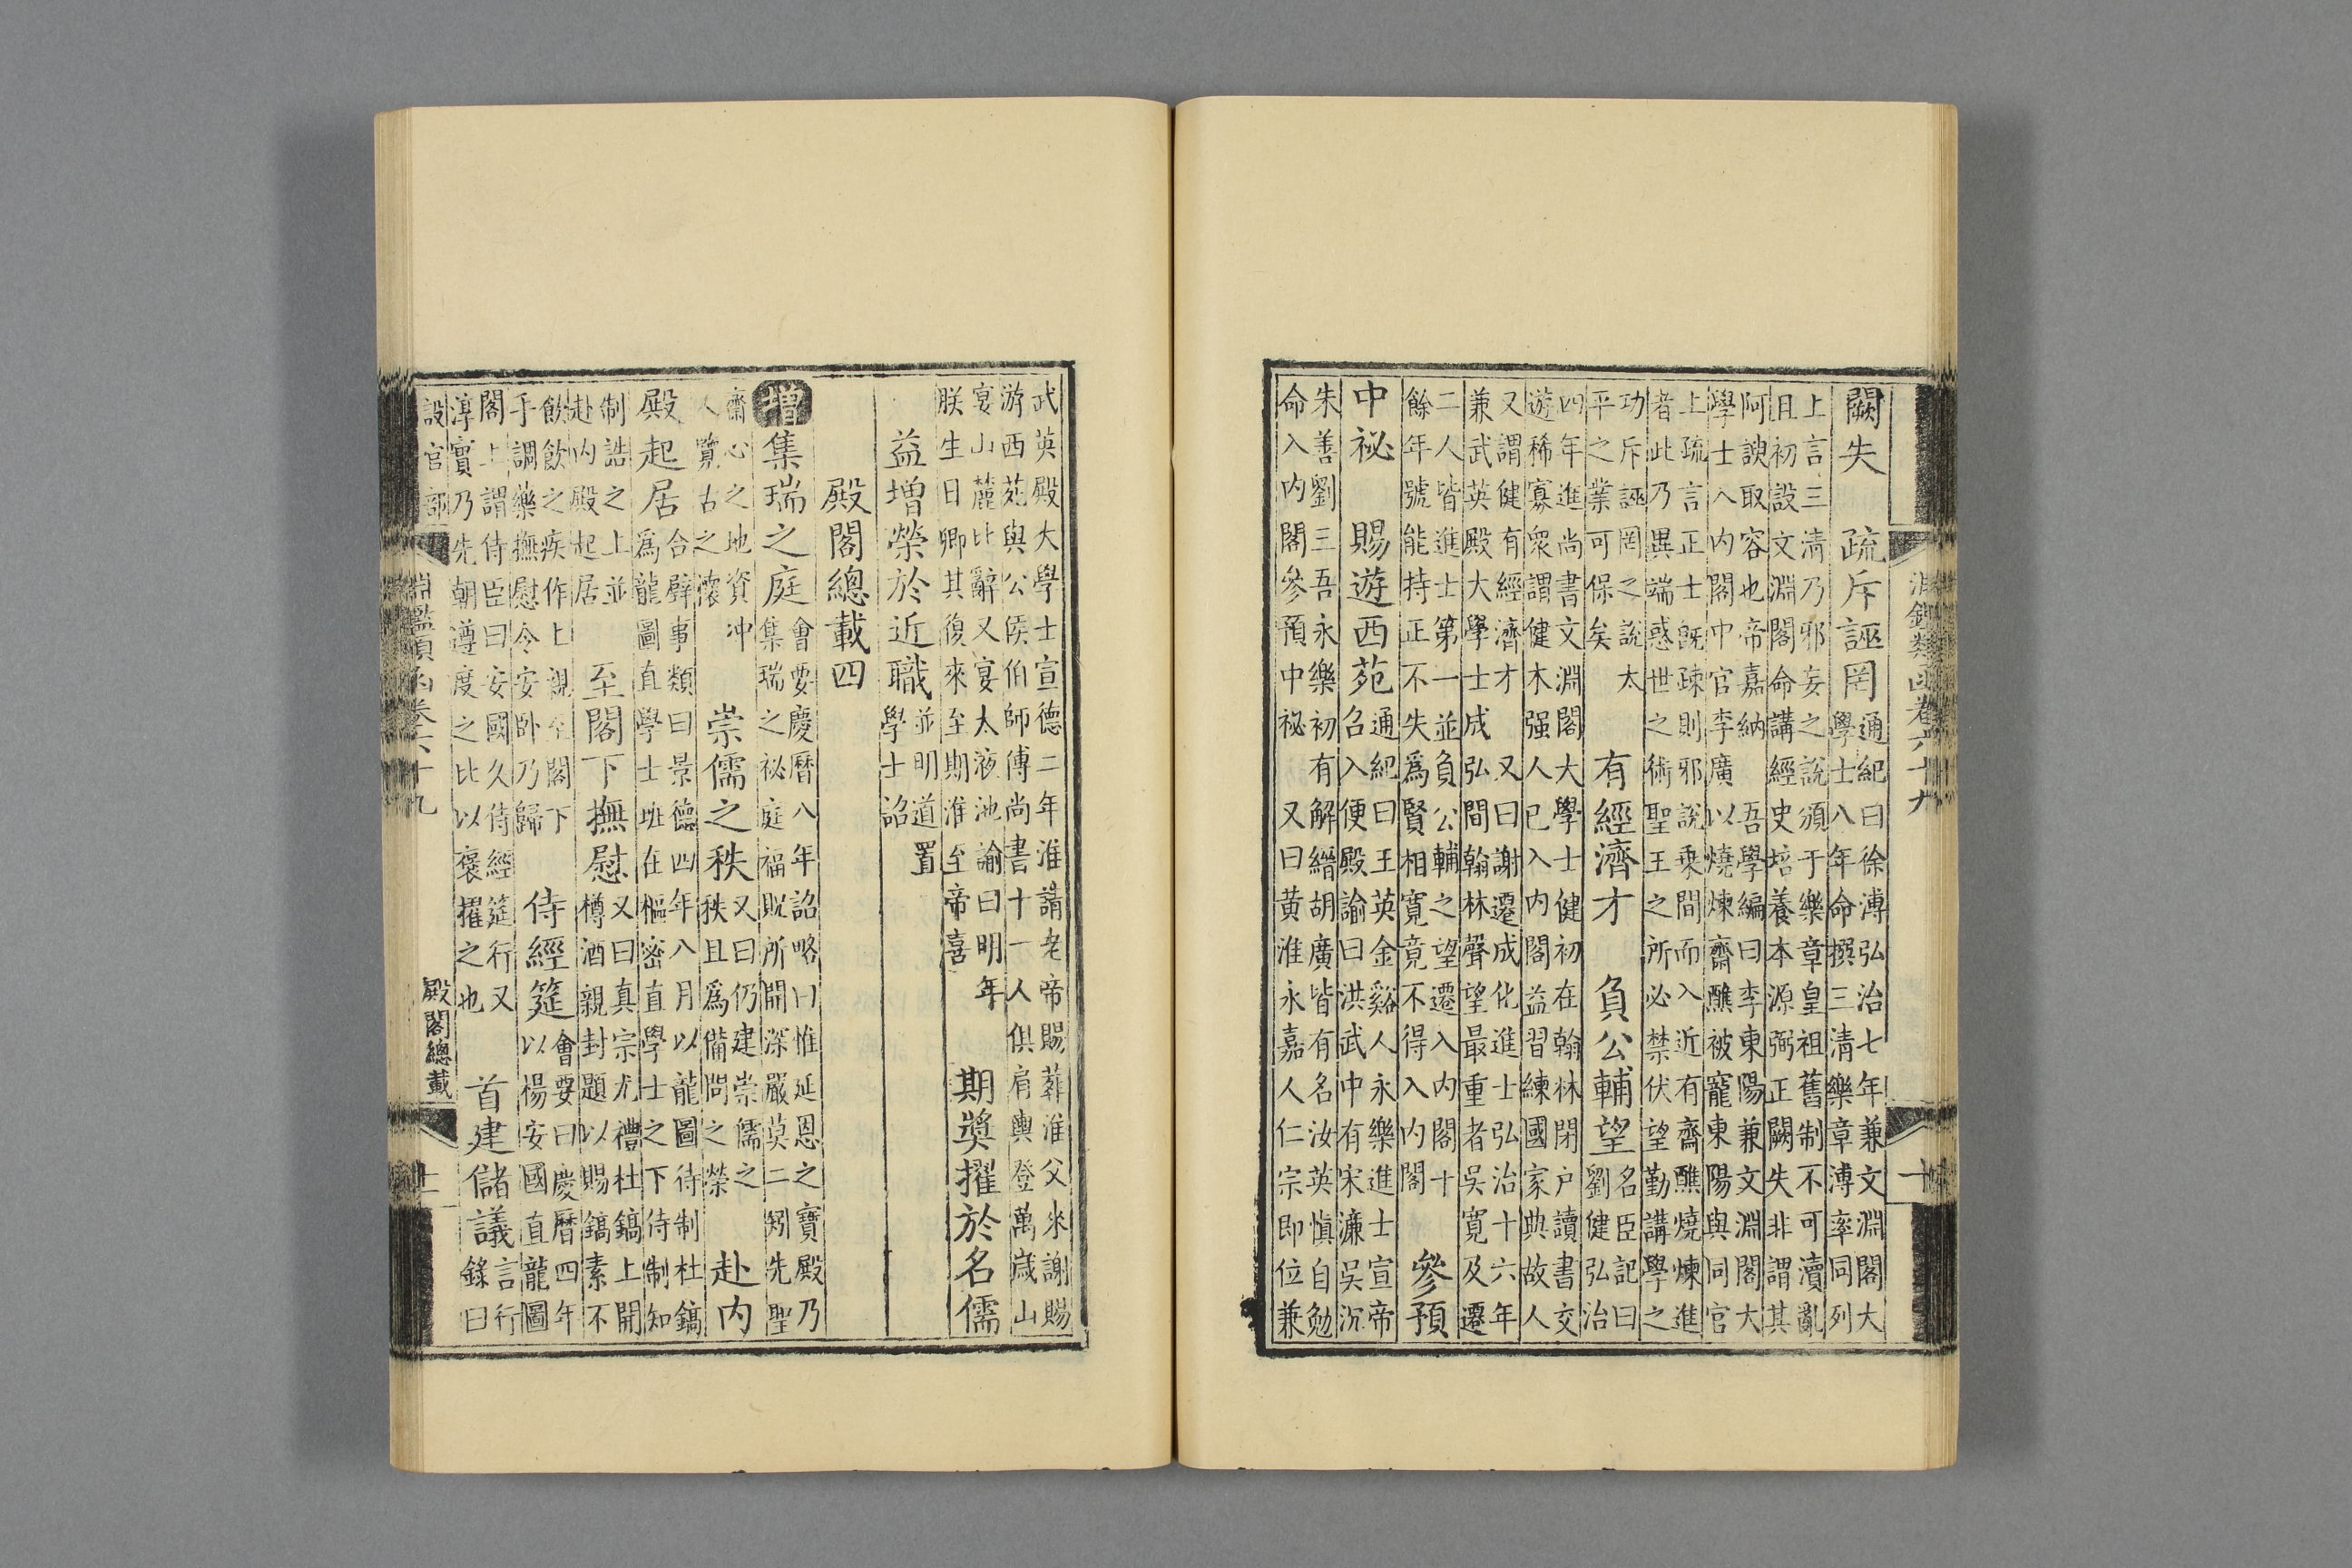 闕失　疏斥誣罔通紀曰徐溥弘治七年兼文淵閣大
學士八年命撰三清樂章溥率同列
上言三清乃邪妄之說頒于樂章皇祖舊制不可瀆亂
且初設文淵閣命講經史培養本源弼正闕失非謂其
阿諛取容也帝嘉納　吾學編曰李東陽兼文淵閣大
學士入內閣中官李廣以燒煉齋醮被寵東陽與同官
上疏言正士既疎則邪說乘間而入近有齋醮燒煉進
者此乃異端惑世之術聖王之所必禁伏望勤講學之
功斥誣罔之說太
平之業可保矣　有經濟才　負公輔望名臣記曰
劉健弘治
四年進尚書文淵閣大學士健初在翰林閉户讀書交
遊稀寡衆謂健木强人已入內閣益習練國家典故人
又謂健有經濟才　又曰謝遷成化進士弘治十六年
兼武英殿大學士成弘間翰林聲望最重者吳寬及遷
二人皆進士第一並負公輔之望遷入內閣十
餘年號能持正不失爲賢相寬竟不得入內閣　參預
中祕　賜遊西苑通紀曰王英金谿人永樂進士宣帝
召入便殿諭曰洪武中有宋濂吳沉
朱善劉三吾永樂初有解縉胡廣皆有名汝英愼自勉
命入內閣參預中祕　又曰黃淮永嘉人仁宗即位兼
淵鑑類函卷六十九
武英殿大學士宣德二年淮請老帝賜葬淮父來謝賜
游西苑與公侯伯師傅尚書十一人俱肩輿登萬歲山
宴山麓比辭又宴太液池諭曰明年
朕生日卿其復來至期淮至帝喜　期奬擢於名儒
益增榮於近職並明道置
學士詔
殿閣總載四
增集瑞之庭會要慶曆八年詔略曰惟延恩之寶殿乃
集瑞之祕庭福貺所開深嚴莫二矧先聖
齋心之地資冲
人覽古之懷　崇儒之秩又曰仍建崇儒之
秩且爲備問之榮　赴內
殿起居合璧事類曰景德四年八月以龍圖待制杜鎬
爲龍圖直學士班在樞密直學士之下侍制知
制誥之上並
赴內殿起居　至閣下撫慰又曰真宗尤禮杜鎬上開
樽酒親封題以賜鎬素不
飲飲之疾作上親至閣下
手調藥撫慰令安卧乃歸　侍經筵會要曰慶曆四年
以楊安國直龍圖
閣上謂侍臣曰安國久侍經筵行又
淳實乃先朝遵度之比以褒擢之也　首建儲議言行
錄曰
設官部
淵鑑類函卷六十九
殿閣總載